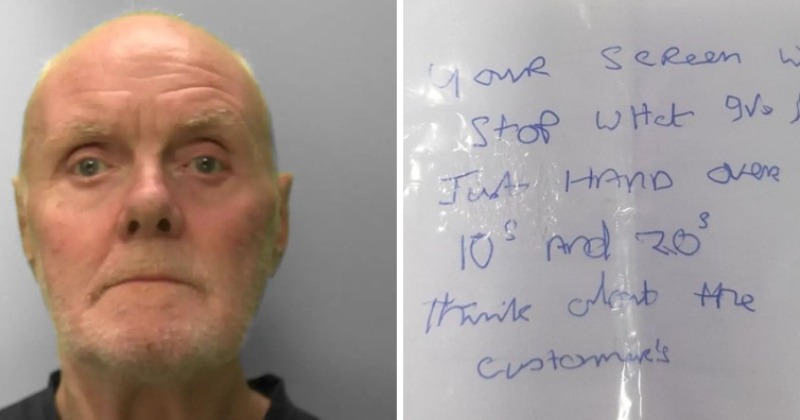 Your SCReen w
Stop wHat
Just HAND over
10s And 20s
think about the
customer's